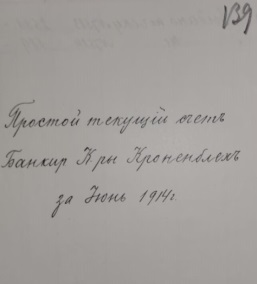 139
Простой текущій счетъ
Банкир. К-ры Кроненблохъ
за Іюнь 1914 г.